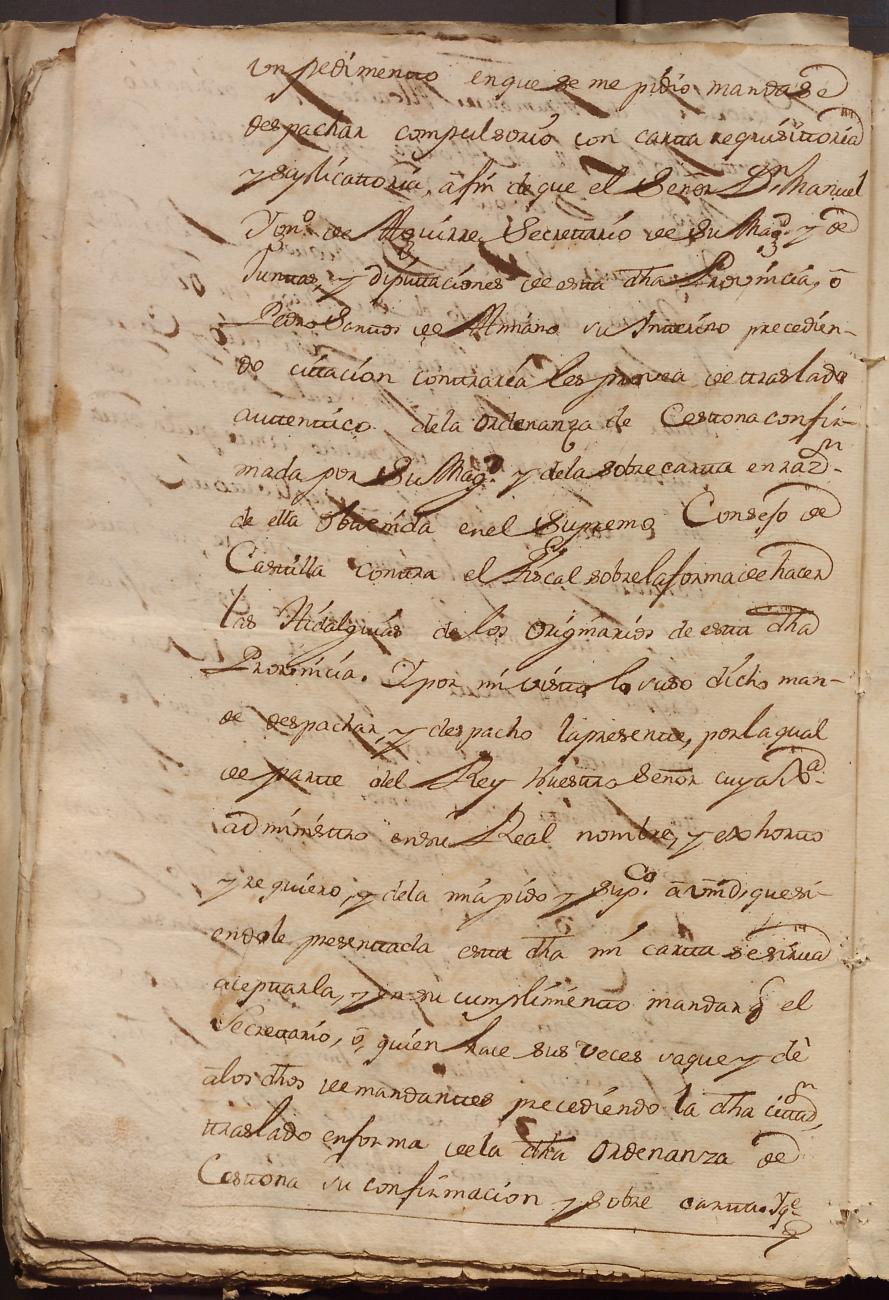 un pedimento en que se me pidio mandase
despachar compulsorio con carta requisittoria
y suplicattoria, a fin de que el Señor Dn Manuel
Ygno. de Aguirre Secrettario de Su Magd. y de
Juntas, y diputtaciones de esta dha Provincia, ô
Pedro Santtos de Amiano su Intterino precedien-
do cittacion conttraria les provea de traslado
auttenttico de la Ordenanza de Cesttona confir-
mada por Su Magd. y de la sobrecartta en razn.
de ella obttenida en el Supremo Consejo de
Casttilla conttra el Fiscal sobre la forma de hacer
las Hidalguias de los Originarios de esta dha
Provincia. Y por mi vistto lo suso dicho man-
de despachar, y despacho la presentte, por la qual
de partte del Rey Nuesttro Señor cuya Jxa.
administtro en su Real nombre, y exhortto
y requiero, y de la mia pido y supco. a vmd, que si-
endole presenttada esta dha mi cartta se sirva
aceptarla, y en su cumplimentto mandar q el
Secrettario, ô quien hace sus veces saque y dê
a los dhos demandanttes precediendo la dha cittn,
ttraslado en forma de la dha Ordenanza de
Cesttona su confirmacion y sobre cartta. Yqe